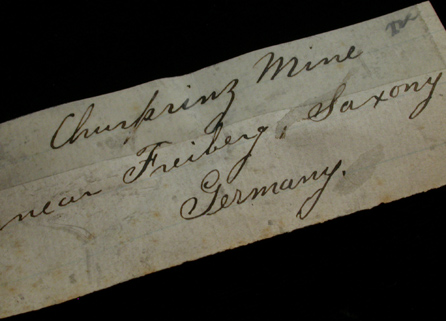 Churprinz Mine
near Freiberg, Saxony
Germany.